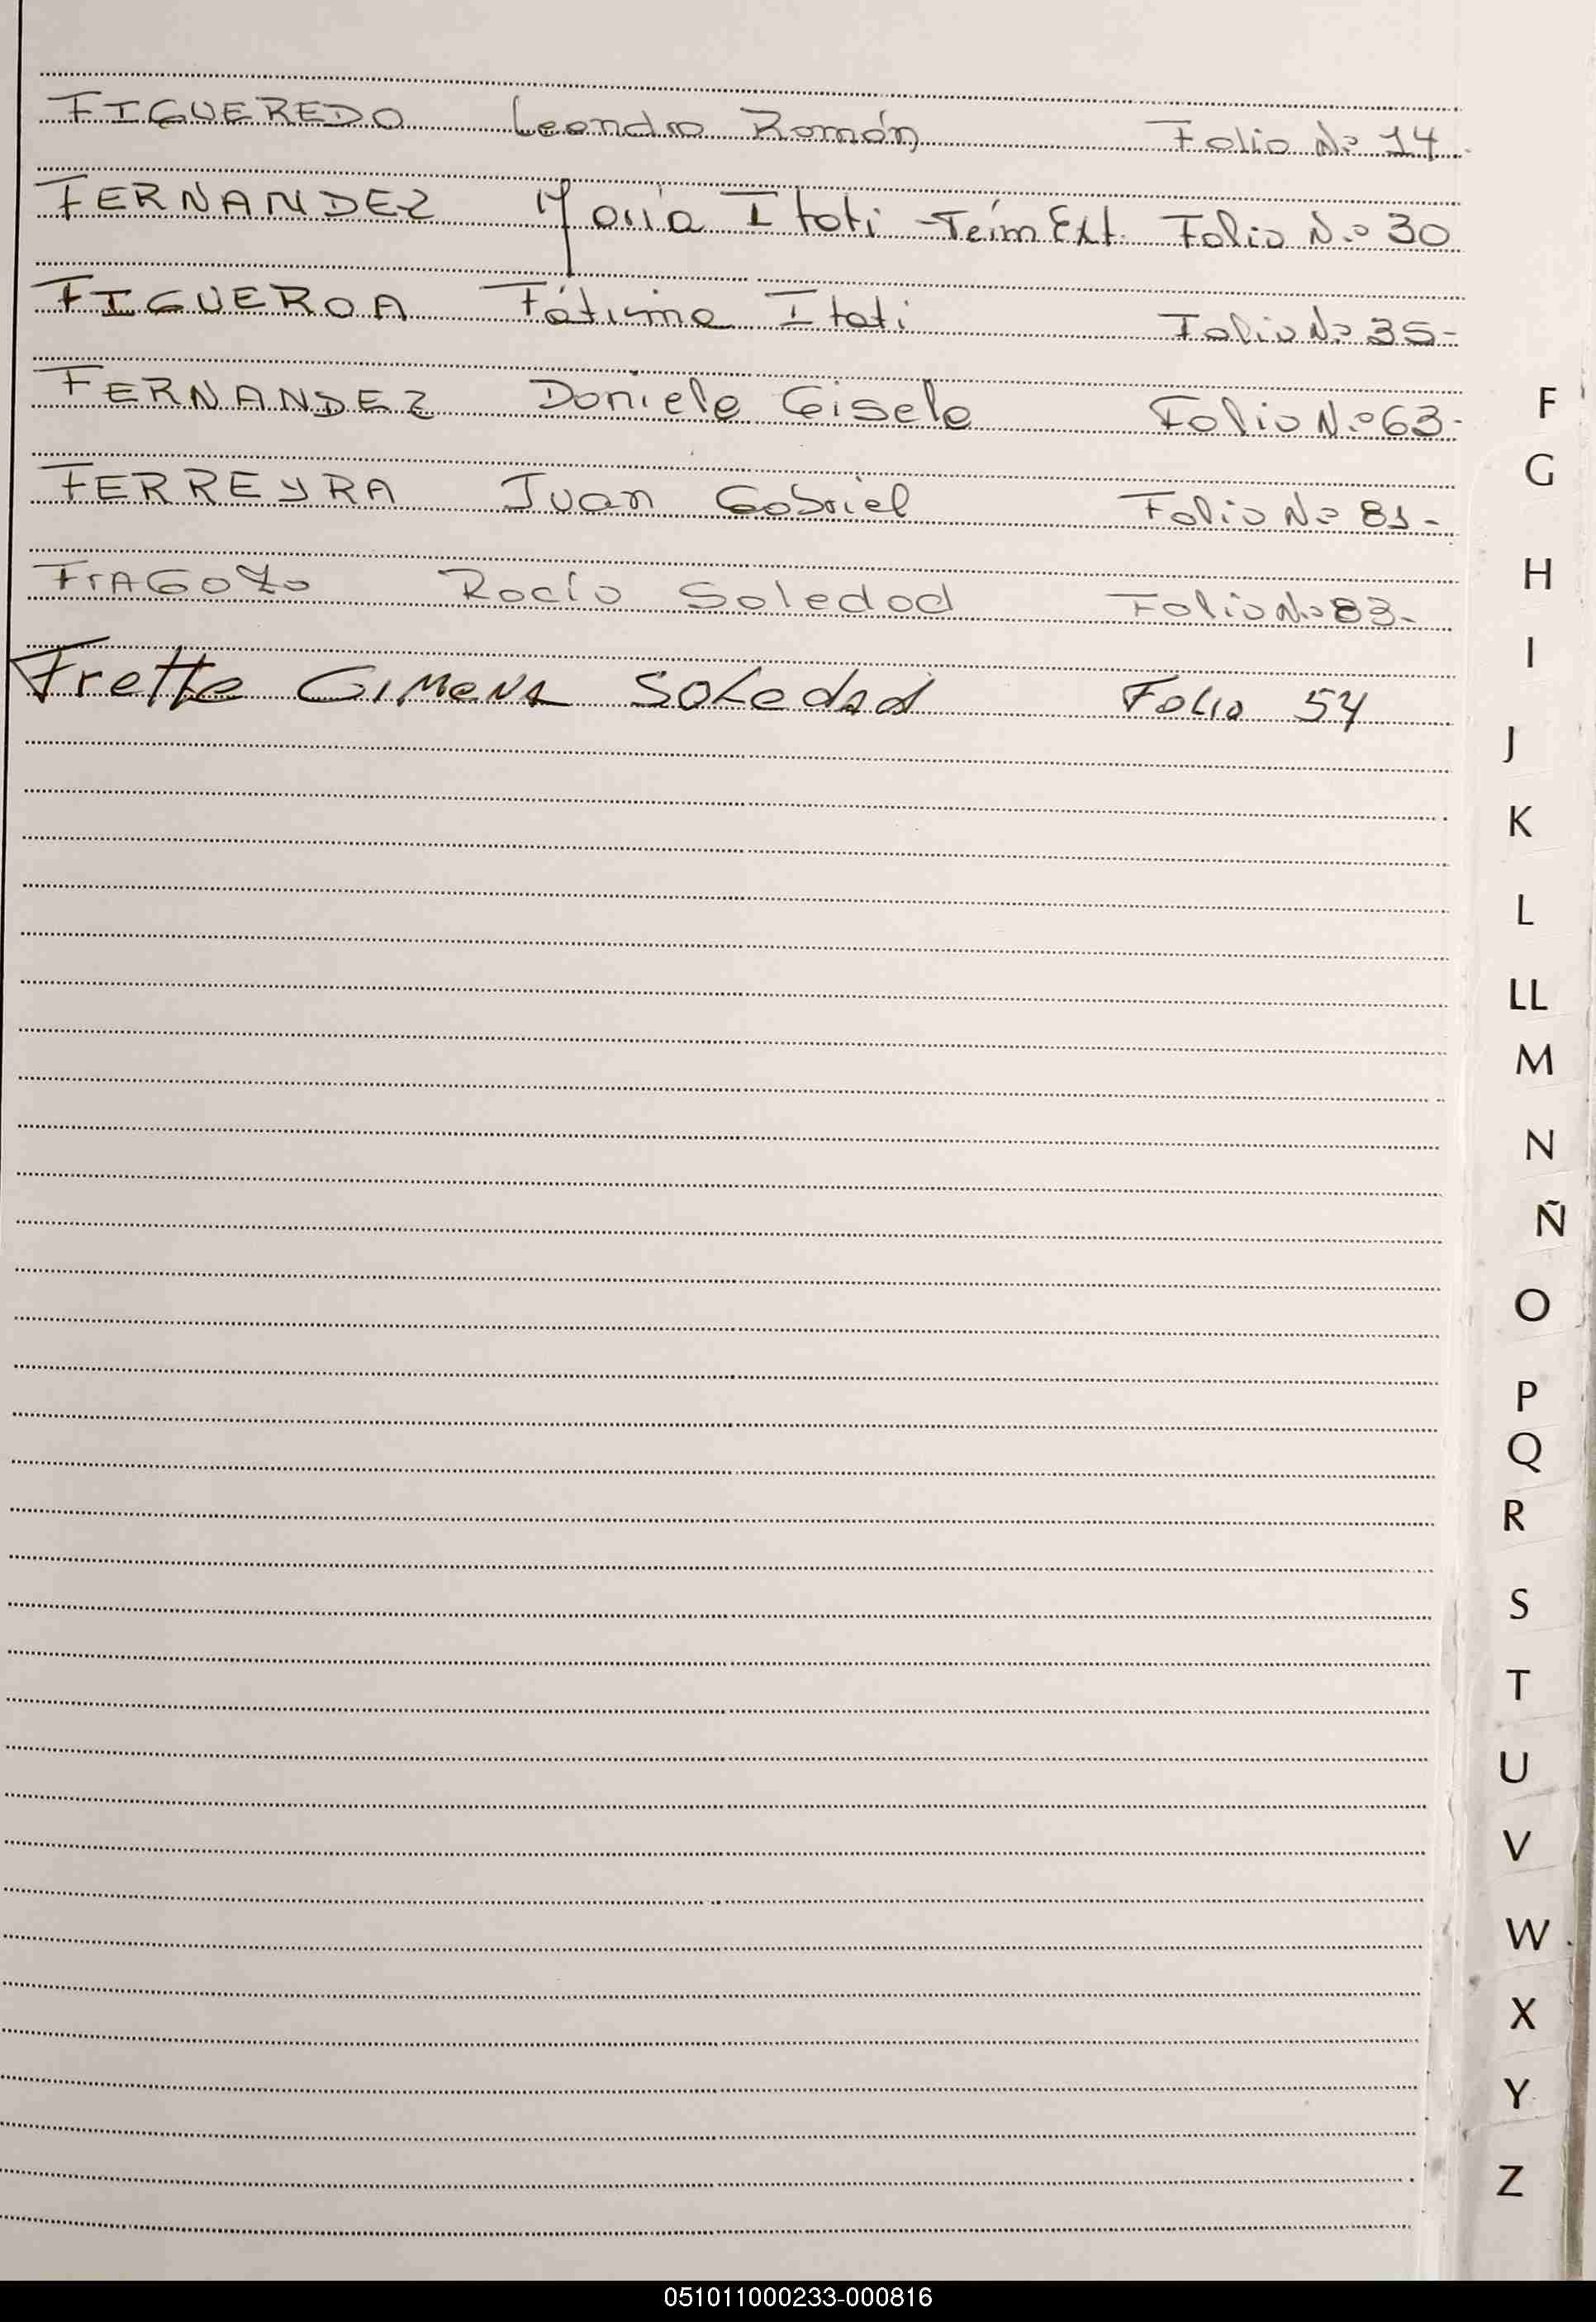 FIGUEREDO Leandro Román Folio N.º 14.
FERNANDEZ María Itati - Folio N.º 30
FIGUEROA Fátima Itati Folio N.º 35-
FERNANDEZ Daniela Gisela Folio N.º 63-
FERREYRA Juan Gabriel Folio N.º 81-
FrAGozo Rocío Soledad Folio N.º 83-
Frette GIMENA Soledad Folio 54
F
G
H
I
J
K
L
LL
M
N
Ñ
O
P
Q
R
S
T
U
V
W
X
Y
Z
051011000233-000816